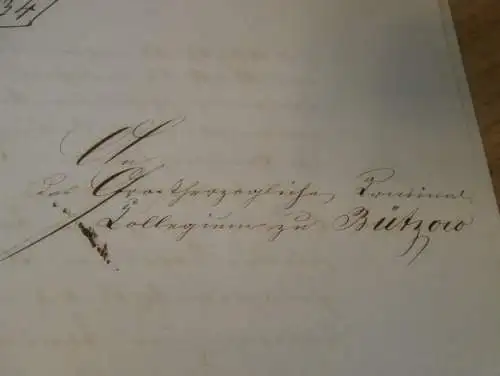 34
An
das Großherzogliche Criminal
Collegium zu Bützow